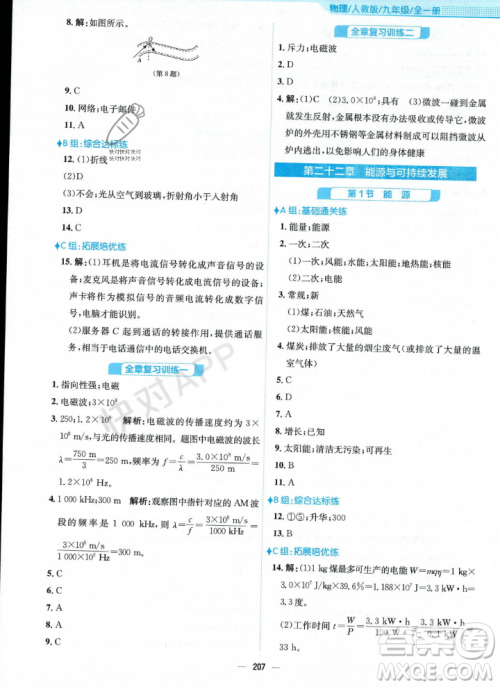 物理/人教版/九年级/全一册
8. 解:
(第8题)
9. C
10. 网络;电子邮件
11. A
B组:综合达标练
12. (1)折线
(2)D
(3)不会;光从空气到玻璃,折射角小于入射角
13. D
14. D
C组:拓展培优练
15. 解:(1)耳机是将电流信号转化成声音信号的设
备;麦克风是将声音信号转化成电流信号的设备;
声卡将作为模拟信号的音频电流转化成数字信
号,电脑才能识别。
(2)服务器C起到通话的转接作用,通话的转接
相当于电话通信中的电话交换机。
全章复习训练一
1. 指向性强;电磁
2. 电磁波;3×10⁸
3. 250;1.2×10⁶ 解析:电磁波的传播速度约为3×
10⁸ m/s,与光速相同。题图中电磁波的波长
λ=750 m/3=250 m,频率f=c/λ=3.0×10⁸ m/s/250 m=
1.2×10⁶ Hz。
4. 1 000 kHz;300 m 解析:观察图中指针对应的AM波
段的频率是1 000 kHz,波长λ=c/f=3×10⁸ m/s/1×10⁶ Hz=
3×10² m=300 m。
5. C
6. C
7. A
8. A
9. C
全章复习训练二
1. 斥力;电磁波
2. D
3. A
4. 解:(1)C (2)3.0×10⁸ (3)微波一碰到金属
就发生反射,金属根本没有办法吸收或传导它;微波
炉的外壳用不锈钢等金属材料制成可以阻挡微波从
炉内逃出,以免影响人们的身体健康
第二十二章 能源与可持续发展
第1节 能源
A组:基础通关练
1. 能量;能源
2. 一次;二次
(1)风能;水能;太阳能;地热能;核能
(2)电能
3. 常规;新
(1)煤;石油;天然气
(2)太阳能;核能
4. 煤炭;排放了大量的烟尘废气(或排放了大量
的热)
5. B
6. D
7. A
8. D
9. 增长;电力
10. 太阳能 清洁无污染;可再生
11. B
B组:综合达标练
12. ①⑤;升华;2.5
13. B
C组:拓展培优练
14. 解:(1)1 kg煤最多可生产的电能W=mqη=1 kg×
3.0×10⁷ J/kg×39.6%=1.2×10⁷ J=3.3 kW·h=
3.3度。
(2)工作时间t=W/P=3.3 kW·h/0.1 kW=
33 h。
207
快对APP
快对快对快对
答案圈
MXQE.COM